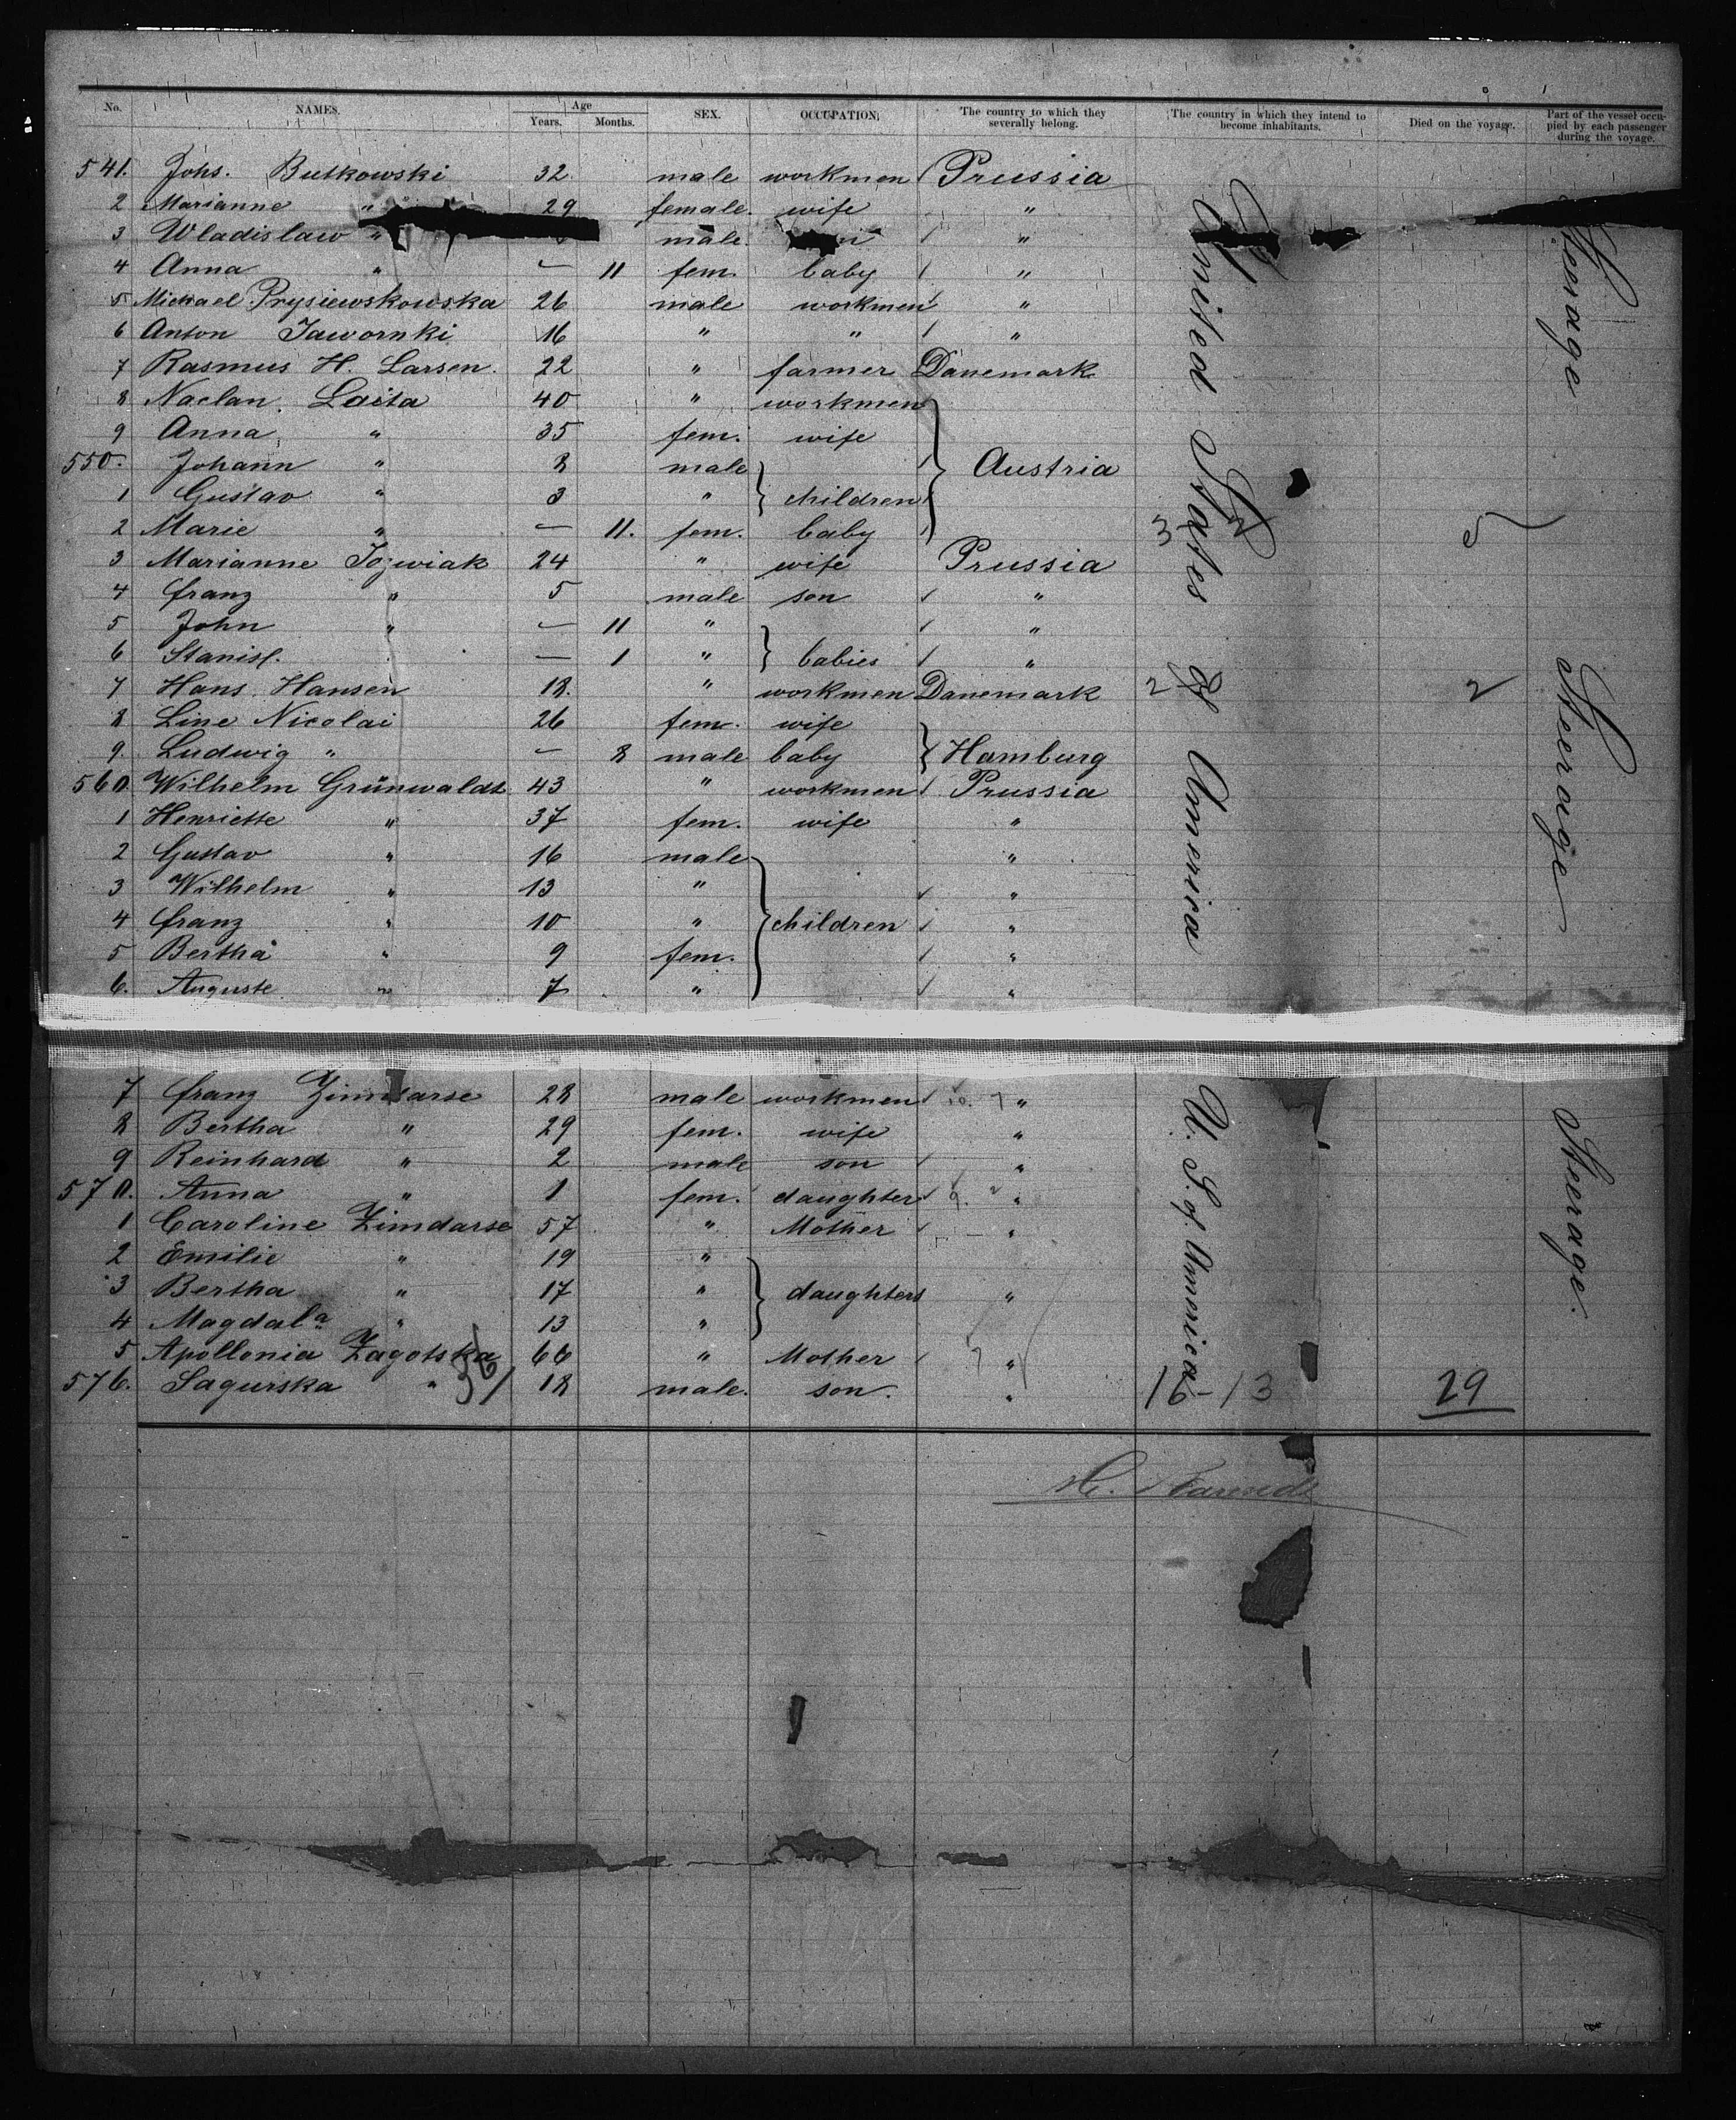 No. NAMES. Age Years. Months. SEX. OCCUPATION. The country to which they severally belong. The country in which they intend to become inhabitants. Died on the voyage. Part of the vessel occupied by each passenger during the voyage.
541. Johs. Butkowski 32 male workmen Prussia
2 Marianne " 29 female wife "
3 Wladislaw " male "
4 Anna " — 11 fem. baby "
5 Michael Prysiewskowska 26 male workmen "
6 Anton Jawornki 16 " " "
7 Rasmus H. Larsen. 22 " farmer Danemark
8 Naclan Laita 40 " workmen
9 Anna " 35 fem. wife
550. Johann " 8 male Austria
1 Gustav " 3 " children
2 Marie " — 11. fem. baby 3 2 5
3 Marianne Jozwiak 24 " wife Prussia
4 Franz " 5 male son "
5 John " — 11 " "
6 Stanisl. — 1 " babies "
7 Hans Hansen 18. " workmen Danemark 2 2
8 Line Nicolai 26 fem. wife
9. Ludwig " — 8 male baby Hamburg
560 Wilhelm Grünwaldt 43 " workmen Prussia
1 Henriette " 37 fem. wife "
2 Gustav " 16 male "
3 Wilhelm " 13 " "
4 Franz " 10 " children "
5 Bertha " 9 fem. "
6. Auguste " 7 " "
United States of America
Steerage
Steerage
7 Franz Zimdarse 28 male workmen "
8 Bertha " 29 fem. wife "
9 Reinhard " 2 male son "
570. Anna " 1 fem. daughter "
1 Caroline Zimdarse 57 " Mother "
2 Emilie " 19 "
3 Bertha " 17 " daughters "
4 Magdala " 13 "
5 Apollonia Zagotska 66 " Mother "
576. Sagurska " 36/ 18 male. son. " 16-13 29
U. S. of America
Steerage.